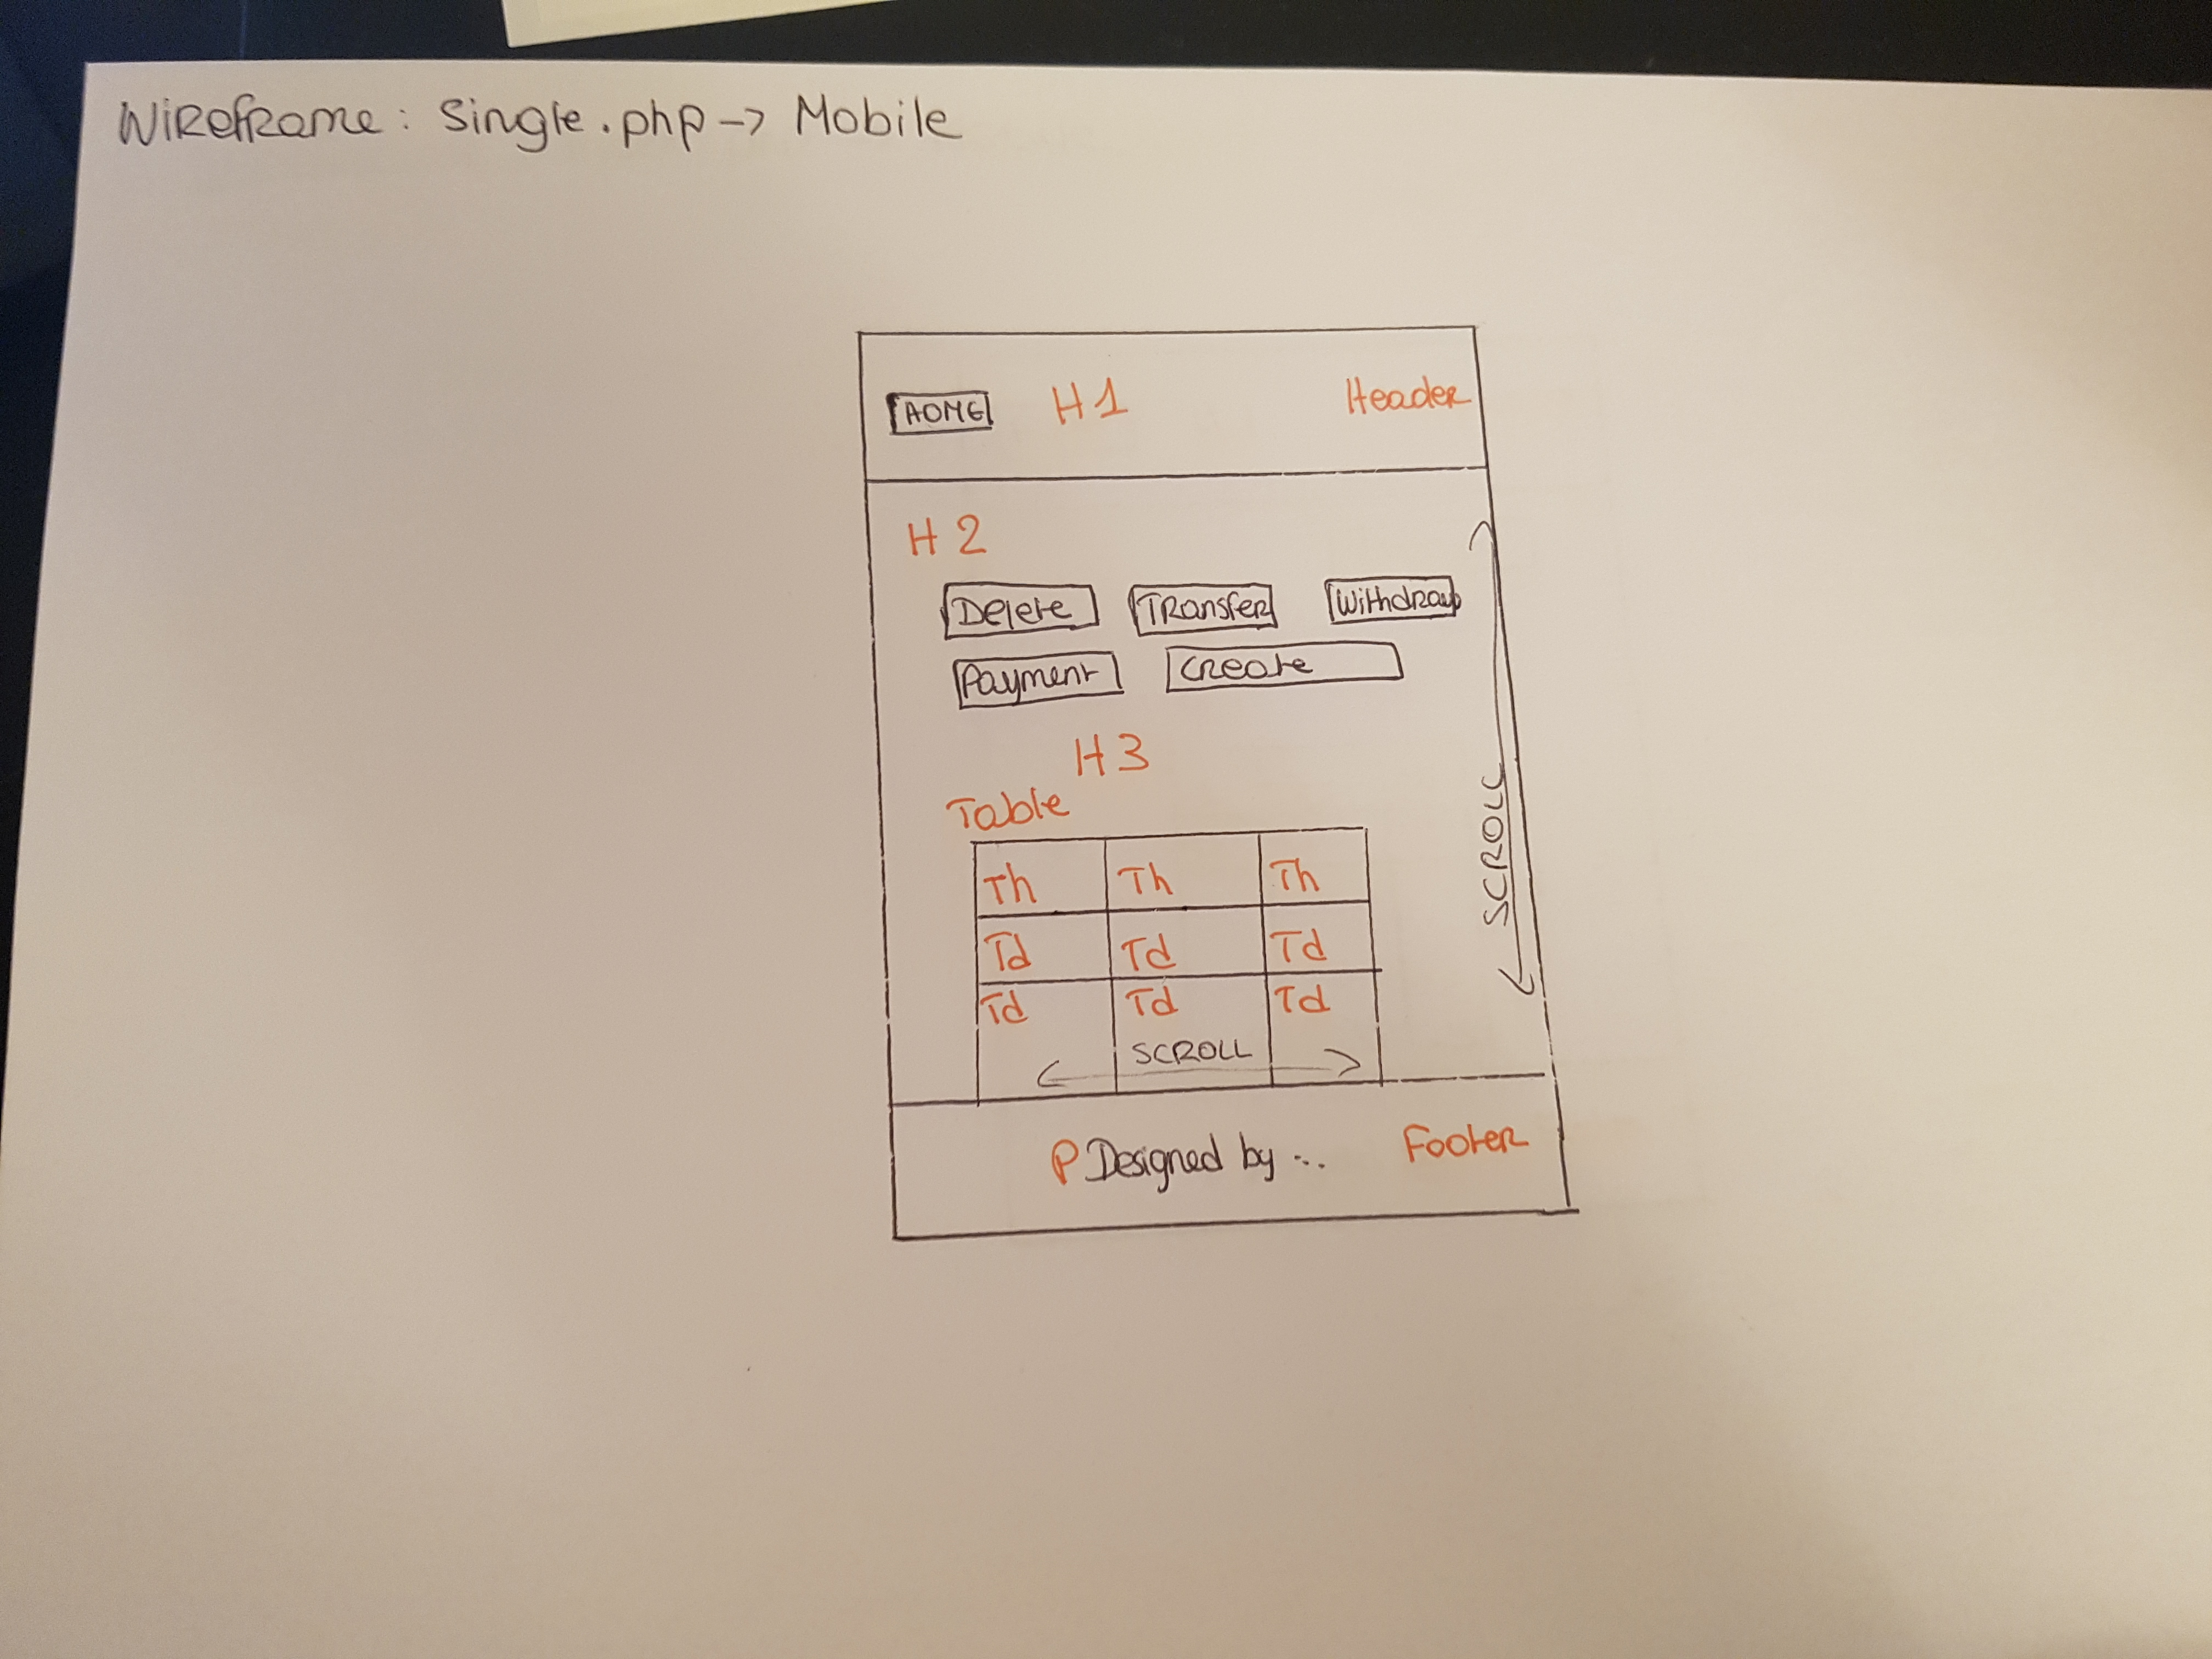 Wireframe: Single.php -> Mobile
HOME H1 Header
H2
Delete Transfer Withdraw
Payment Create
H3
Table
Th Th Th
Td Td Td
Td Td Td
SCROLL
SCROLL
P Designed by ...
Footer